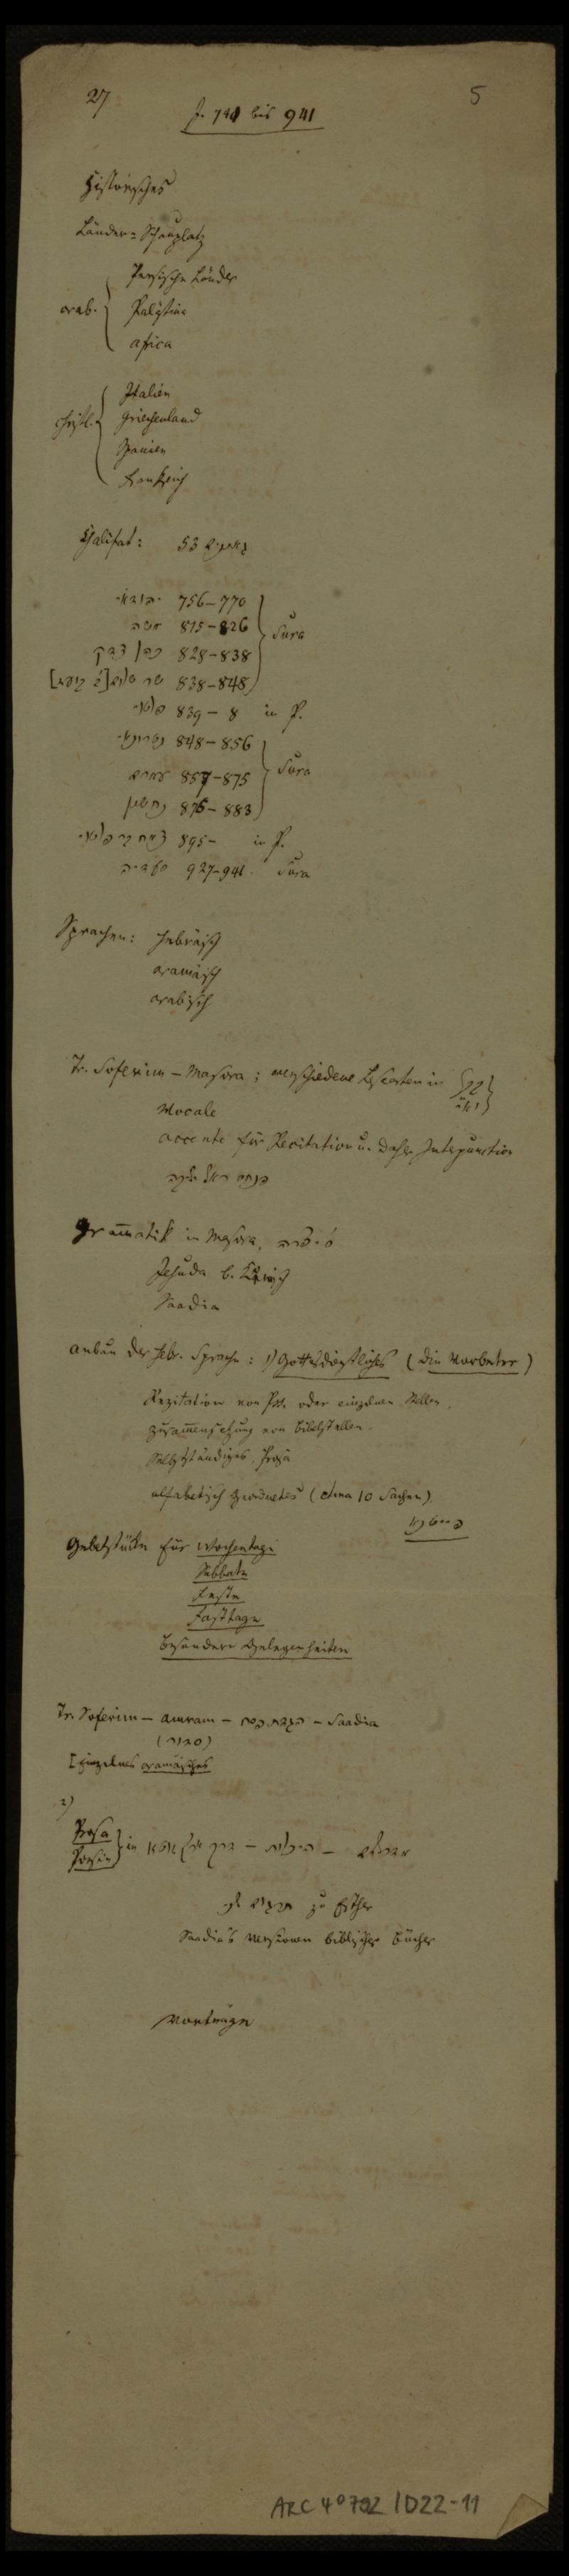 27
5
J. 740 bis 941
Historisches
Länder-Schauplatz
arab.
Persische Länder
Palästina
Africa
christl.
Italien
Griechenland
Spanien
Frankreich
Chalifat: 53 גאונים
יהודאי 756–770
משה 815–826
כהן צדק 828–838
שר שלום 838–848
Sura
פלטוי 839– 8 in P.
נטרונאי 848–856
עמרם 857–875
נחשון 876–883
Sura
צמח בר פלטוי 895– in P.
סעדיה 927–941. Sura
Sprachen: hebräisch
aramäisch
arabisch
Tr. Soferim – Masora; verschiedene Lesearten in
Vocale
Accente für Recitation u. daher Interpunction
Grammatik in Masora,
Jehuda b. Koreisch
Saadia
Anbau der hebr. Sprache: 1) Gottesdienstliches (die Vorbeter)
Rezitation von Pss. oder einzelnen Stellen,
Zusammensetzung von Bibelstellen.
Selbstständiges, Prosa
alfabetisch Geordnetes (etwa 10 Sachen)
Gebetstücke für Wochentage
Sabbate
Feste
Fasttage
besondere Gelegenheiten
Tr. Soferim – Amram – הגדת פסח – Saadia
(סדור)
[Einzelnes aramäisches
2)
Prosa
Poesie
in – היכלות –
תרגום שני zu Esther
Saadia's Versionen biblischer Bücher
Vorträge
ARC 4° 792 / D22-11